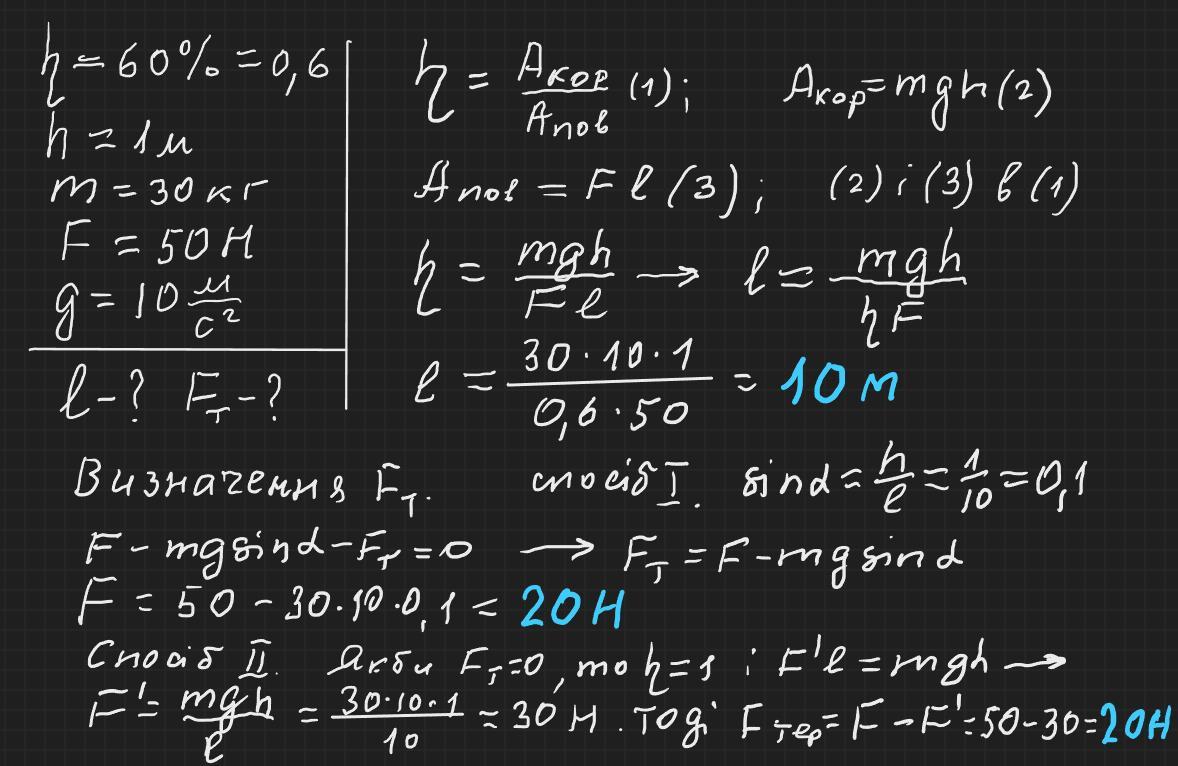 η = 60% = 0,6
h = 1м
m = 30 кг
F = 50 Н
g = 10 м/с²
l - ? Fт - ?
η = Aкор/Aпов (1); Aкор = mgh (2)
Aпов = Fl (3); (2) і (3) в (1)
η = mgh/Fl → l = mgh/ηF
l = 30·10·1/0,6·50 = 10 м
Визначення Fт. спосіб I. sinα = h/l = 1/10 = 0,1
F - mgsinα - Fт = 0 → Fт = F - mgsinα
F = 50 - 30·10·0,1 = 20 Н
Спосіб II. Якби Fт = 0, то η = 1 і F'l = mgh →
F' = mgh/l = 30·10·1/10 = 30 Н. Тоді Fтер = F - F' = 50 - 30 = 20 Н